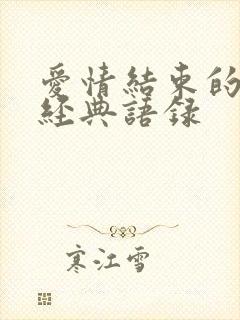 愛情結束的
經典語錄
寒江雪